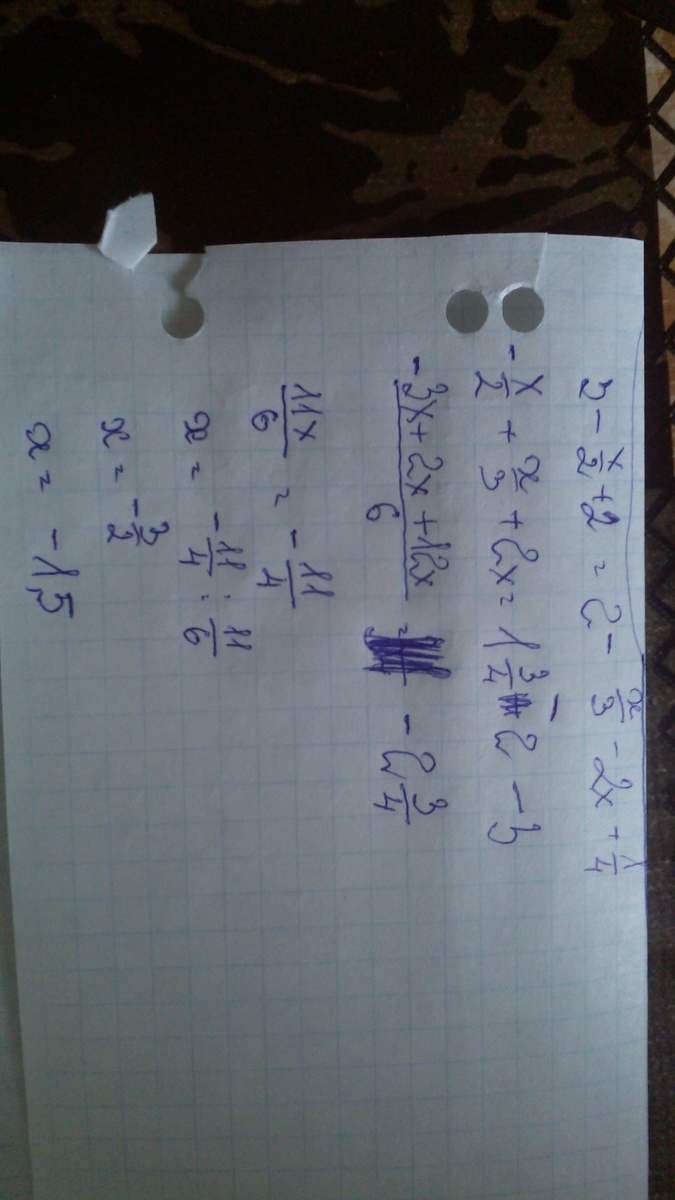 3 - x/2 + 2 = 2 - x/3 - 2x + 1/4
- x/2 + x/3 + 2x = 1 3/4 - 2 - 3
(-3x + 2x + 12x)/6 = - 2 3/4
11x/6 = - 11/4
x = - 11/4 : 11/6
x = - 3/2
x = - 1,5